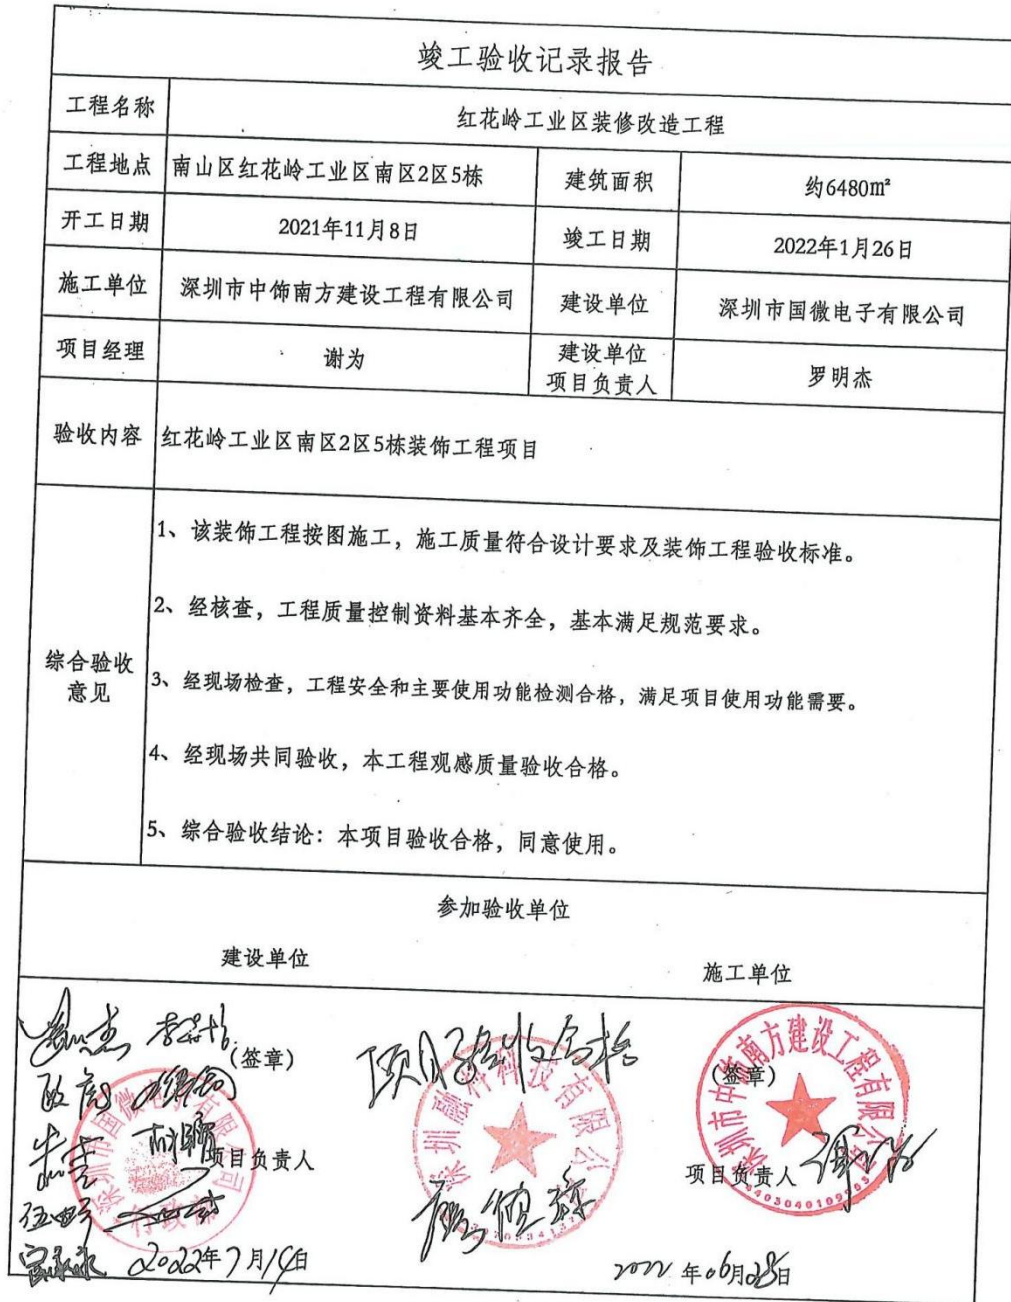 竣工验收记录报告
工程名称 红花岭工业区装修改造工程
工程地点 南山区红花岭工业区南区2区5栋 建筑面积 约6480m²
开工日期 2021年11月8日 竣工日期 2022年1月26日
施工单位 深圳市中饰南方建设工程有限公司 建设单位 深圳市国微电子有限公司
项目经理 谢为 建设单位项目负责人 罗明杰
验收内容 红花岭工业区南区2区5栋装饰工程项目
综合验收意见
1、该装饰工程按图施工，施工质量符合设计要求及装饰工程验收标准。
2、经核查，工程质量控制资料基本齐全，基本满足规范要求。
3、经现场检查，工程安全和主要使用功能检测合格，满足项目使用功能需要。
4、经现场共同验收，本工程观感质量验收合格。
5、综合验收结论：本项目验收合格，同意使用。
参加验收单位
建设单位 施工单位
(签章) 项目验收合格 (签章)
深圳市国微电子有限公司
行政部
深圳融科科技有限公司
深圳市中饰南方建设工程有限公司
项目负责人 项目负责人
2022年7月14日 2022年06月28日